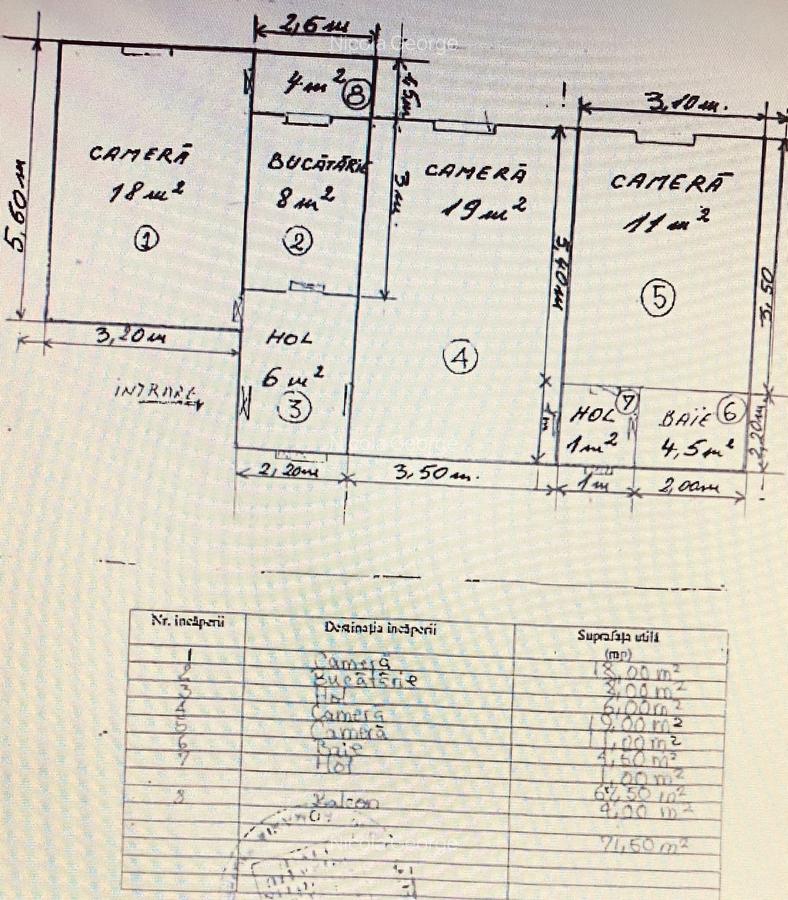 2,6 m
Nicola George
4 m² 8
1,5 m
3,10 m.
CAMERĂ
18 m²
1
5,60 m
BUCĂTĂRIE
8 m²
2
3 m.
CAMERĂ
19 m²
4
5,40 m
CAMERĂ
11 m²
5
3,50
3,20 m
INTRARE
HOL
6 m²
3
1 m
HOL 7
1 m²
BAIE 6
4,5 m²
2,20 m
Nicola George
2,20 m
3,50 m.
1 m
2,00 m
Nr. încăperii Destinația încăperii Suprafața utilă
(mp)
1 Cameră 18,00 m²
2 Bucătărie 8,00 m²
3 Hol 6,00 m²
4 Cameră 19,00 m²
5 Cameră 11,00 m²
6 Baie 4,50 m²
7 Hol 1,00 m²
67,50 m²
8 Balcon 4,00 m²
71,50 m²
Nicola George